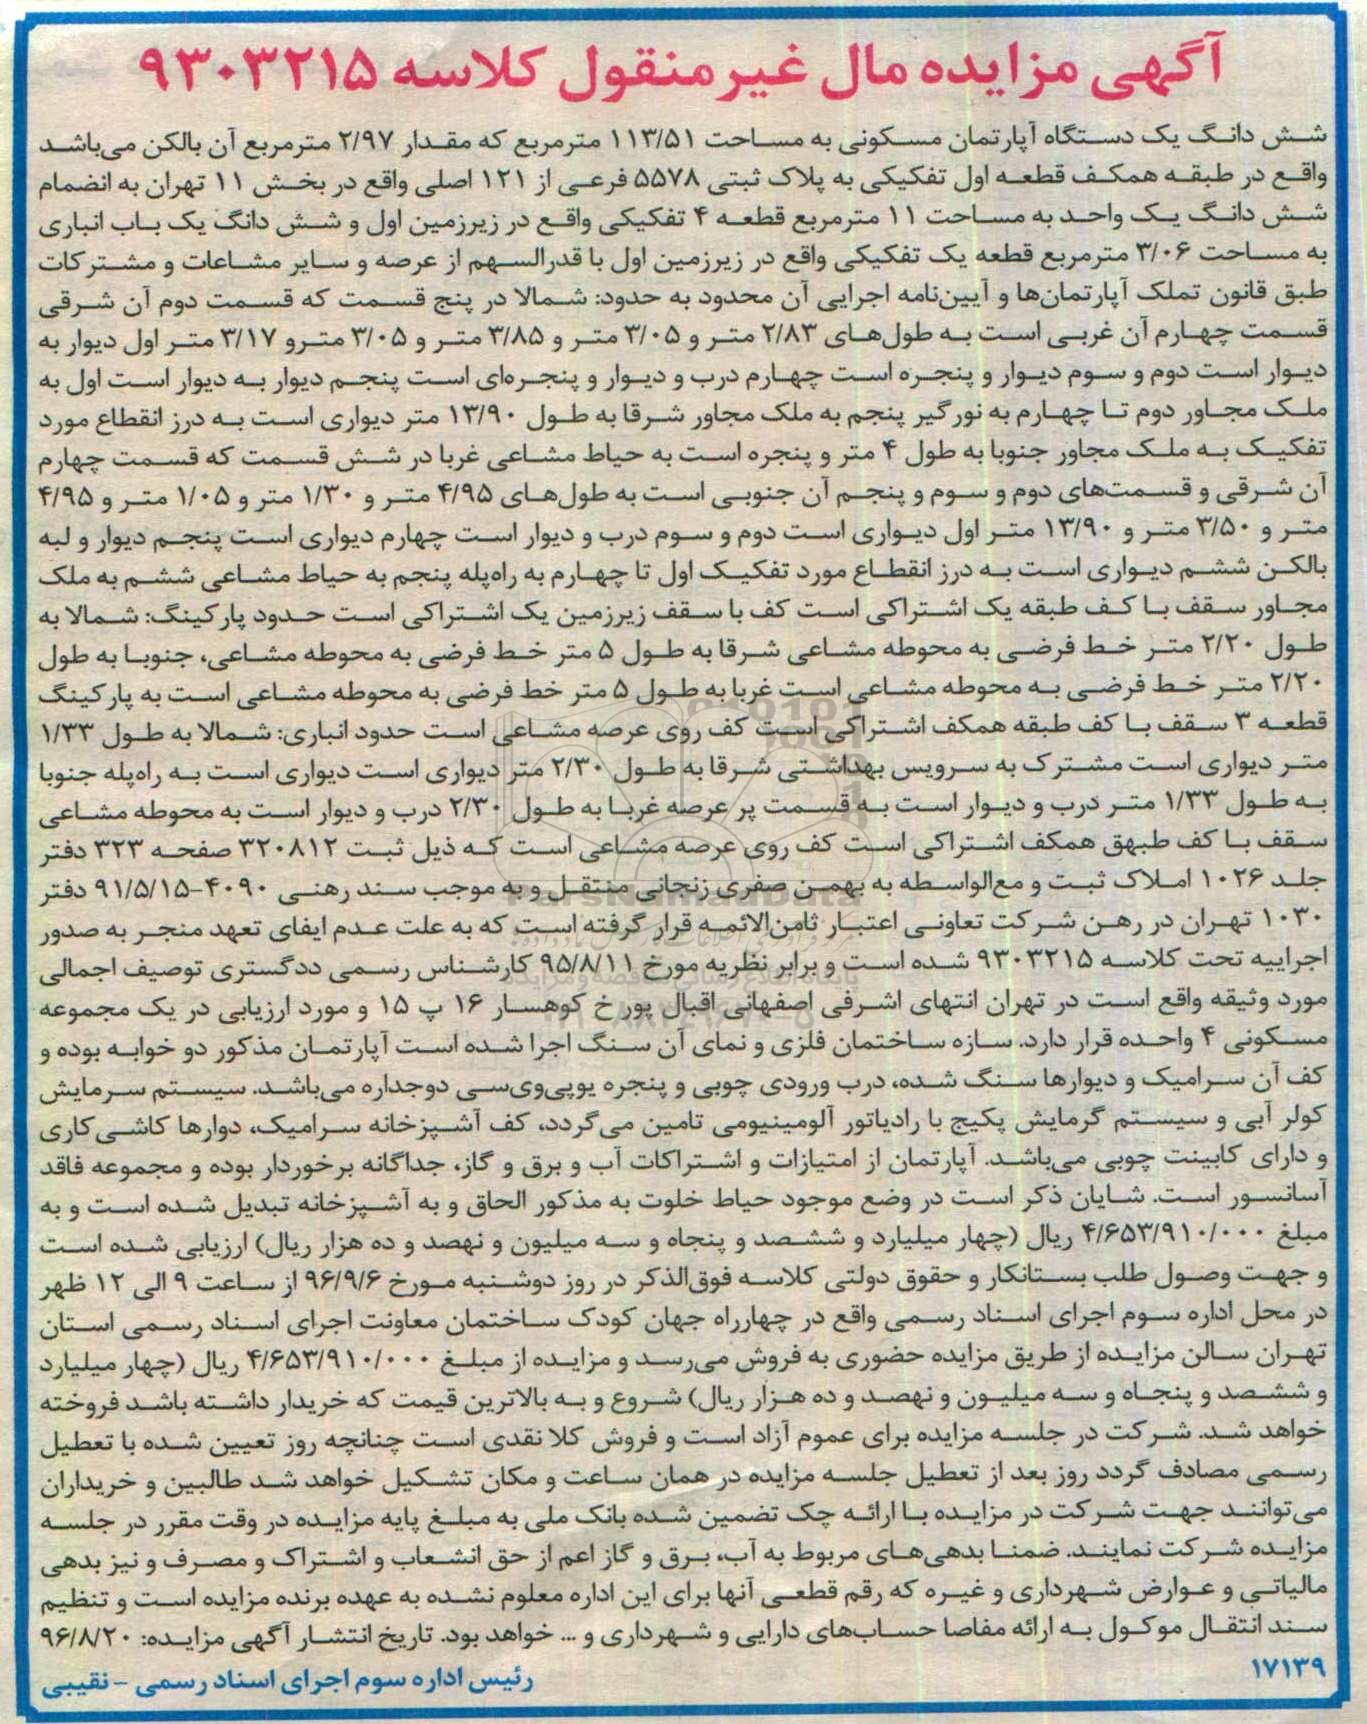 آگهی مزایده مال غیرمنقول کلاسه ۹۳۰۳۲۱۵
شش دانگ یک دستگاه آپارتمان مسکونی به مساحت ۱۱۳/۵۱ مترمربع که مقدار ۲/۹۷ مترمربع آن بالکن می‌باشد
واقع در طبقه همکف قطعه اول تفکیکی به پلاک ثبتی ۵۵۷۸ فرعی از ۱۲۱ اصلی واقع در بخش ۱۱ تهران به انضمام
شش دانگ یک واحد به مساحت ۱۱ مترمربع قطعه ۴ تفکیکی واقع در زیرزمین اول و شش دانگ یک باب انباری
به مساحت ۳/۰۶ مترمربع قطعه یک تفکیکی واقع در زیرزمین اول با قدرالسهم از عرصه و سایر مشاعات و مشترکات
طبق قانون تملک آپارتمان‌ها و آیین‌نامه اجرایی آن محدود به حدود: شمالا در پنج قسمت که قسمت دوم آن شرقی
قسمت چهارم آن غربی است به طول‌های ۲/۸۳ متر و ۳/۰۵ متر و ۳/۸۵ متر و ۳/۰۵ مترو ۳/۱۷ متر اول دیوار به
دیوار است دوم و سوم دیوار و پنجره است چهارم درب و دیوار و پنجره‌ای است پنجم دیوار به دیوار است اول به
ملک مجاور دوم تا چهارم به نورگیر پنجم به ملک مجاور شرقا به طول ۱۳/۹۰ متر دیواری است به درز انقطاع مورد
تفکیک به ملک مجاور جنوبا به طول ۴ متر و پنجره است به حیاط مشاعی غربا در شش قسمت که قسمت چهارم
آن شرقی و قسمت‌های دوم و سوم و پنجم آن جنوبی است به طول‌های ۴/۹۵ متر و ۱/۳۰ متر و ۱/۰۵ متر و ۴/۹۵
متر و ۳/۵۰ متر و ۱۳/۹۰ متر اول دیواری است دوم و سوم درب و دیوار است چهارم دیواری است پنجم دیوار و لبه
بالکن ششم دیواری است به درز انقطاع مورد تفکیک اول تا چهارم به راه‌پله پنجم به حیاط مشاعی ششم به ملک
مجاور سقف با کف طبقه یک اشتراکی است کف با سقف زیرزمین یک اشتراکی است حدود پارکینگ: شمالا به
طول ۲/۲۰ متر خط فرضی به محوطه مشاعی شرقا به طول ۵ متر خط فرضی به محوطه مشاعی، جنوبا به طول
۲/۲۰ متر خط فرضی به محوطه مشاعی است غربا به طول ۵ متر خط فرضی به محوطه مشاعی است به پارکینگ
قطعه ۳ سقف با کف طبقه همکف اشتراکی است کف روی عرصه مشاعی است حدود انباری: شمالا به طول ۱/۳۳
متر دیواری است مشترک به سرویس بهداشتی شرقا به طول ۲/۳۰ متر دیواری است دیواری است به راه‌پله جنوبا
به طول ۱/۳۳ متر درب و دیوار است به قسمت پر عرصه غربا به طول ۲/۳۰ درب و دیوار است به محوطه مشاعی
سقف با کف طبهق همکف اشتراکی است کف روی عرصه مشاعی است که ذیل ثبت ۳۲۰۸۱۲ صفحه ۳۲۳ دفتر
جلد ۱۰۲۶ املاک ثبت و مع‌الواسطه به بهمن صفری زنجانی منتقل و به موجب سند رهنی ۴۰۹۰-۹۱/۵/۱۵ دفتر
۱۰۳۰ تهران در رهن شرکت تعاونی اعتبار ثامن‌الائمه قرار گرفته است که به علت عدم ایفای تعهد منجر به صدور
اجراییه تحت کلاسه ۹۳۰۳۲۱۵ شده است و برابر نظریه مورخ ۹۵/۸/۱۱ کارشناس رسمی ددگستری توصیف اجمالی
مورد وثیقه واقع است در تهران انتهای اشرفی اصفهانی اقبال پور خ کوهسار ۱۶ پ ۱۵ و مورد ارزیابی در یک مجموعه
مسکونی ۴ واحده قرار دارد. سازه ساختمان فلزی و نمای آن سنگ اجرا شده است آپارتمان مذکور دو خوابه بوده و
کف آن سرامیک و دیوارها سنگ شده، درب ورودی چوبی و پنجره یوپی‌وی‌سی دوجداره می‌باشد. سیستم سرمایش
کولر آبی و سیستم گرمایش پکیج با رادیاتور آلومینیومی تامین می‌گردد، کف آشپزخانه سرامیک، دوارها کاشی‌کاری
و دارای کابینت چوبی می‌باشد. آپارتمان از امتیازات و اشتراکات آب و برق و گاز، جداگانه برخوردار بوده و مجموعه فاقد
آسانسور است. شایان ذکر است در وضع موجود حیاط خلوت به مذکور الحاق و به آشپزخانه تبدیل شده است و به
مبلغ ۴/۶۵۳/۹۱۰/۰۰۰ ریال (چهار میلیارد و ششصد و پنجاه و سه میلیون و نهصد و ده هزار ریال) ارزیابی شده است
و جهت وصول طلب بستانکار و حقوق دولتی کلاسه فوق‌الذکر در روز دوشنبه مورخ ۹۶/۹/۶ از ساعت ۹ الی ۱۲ ظهر
در محل اداره سوم اجرای اسناد رسمی واقع در چهارراه جهان کودک ساختمان معاونت اجرای اسناد رسمی استان
تهران سالن مزایده از طریق مزایده حضوری به فروش می‌رسد و مزایده از مبلغ ۴/۶۵۳/۹۱۰/۰۰۰ ریال (چهار میلیارد
و ششصد و پنجاه و سه میلیون و نهصد و ده هزار ریال) شروع و به بالاترین قیمت که خریدار داشته باشد فروخته
خواهد شد. شرکت در جلسه مزایده برای عموم آزاد است و فروش کلا نقدی است چنانچه روز تعیین شده با تعطیل
رسمی مصادف گردد روز بعد از تعطیل جلسه مزایده در همان ساعت و مکان تشکیل خواهد شد طالبین و خریداران
می‌توانند جهت شرکت در مزایده با ارائه چک تضمین شده بانک ملی به مبلغ پایه مزایده در وقت مقرر در جلسه
مزایده شرکت نمایند. ضمنا بدهی‌های مربوط به آب، برق و گاز اعم از حق انشعاب و اشتراک و مصرف و نیز بدهی
مالیاتی و عوارض شهرداری و غیره که رقم قطعی آنها برای این اداره معلوم نشده به عهده برنده مزایده است و تنظیم
سند انتقال موکول به ارائه مفاصا حساب‌های دارایی و شهرداری و ... خواهد بود. تاریخ انتشار آگهی مزایده: ۹۶/۸/۲۰
۱۷۱۳۹
رئیس اداره سوم اجرای اسناد رسمی - نقیبی
ParsNamadData